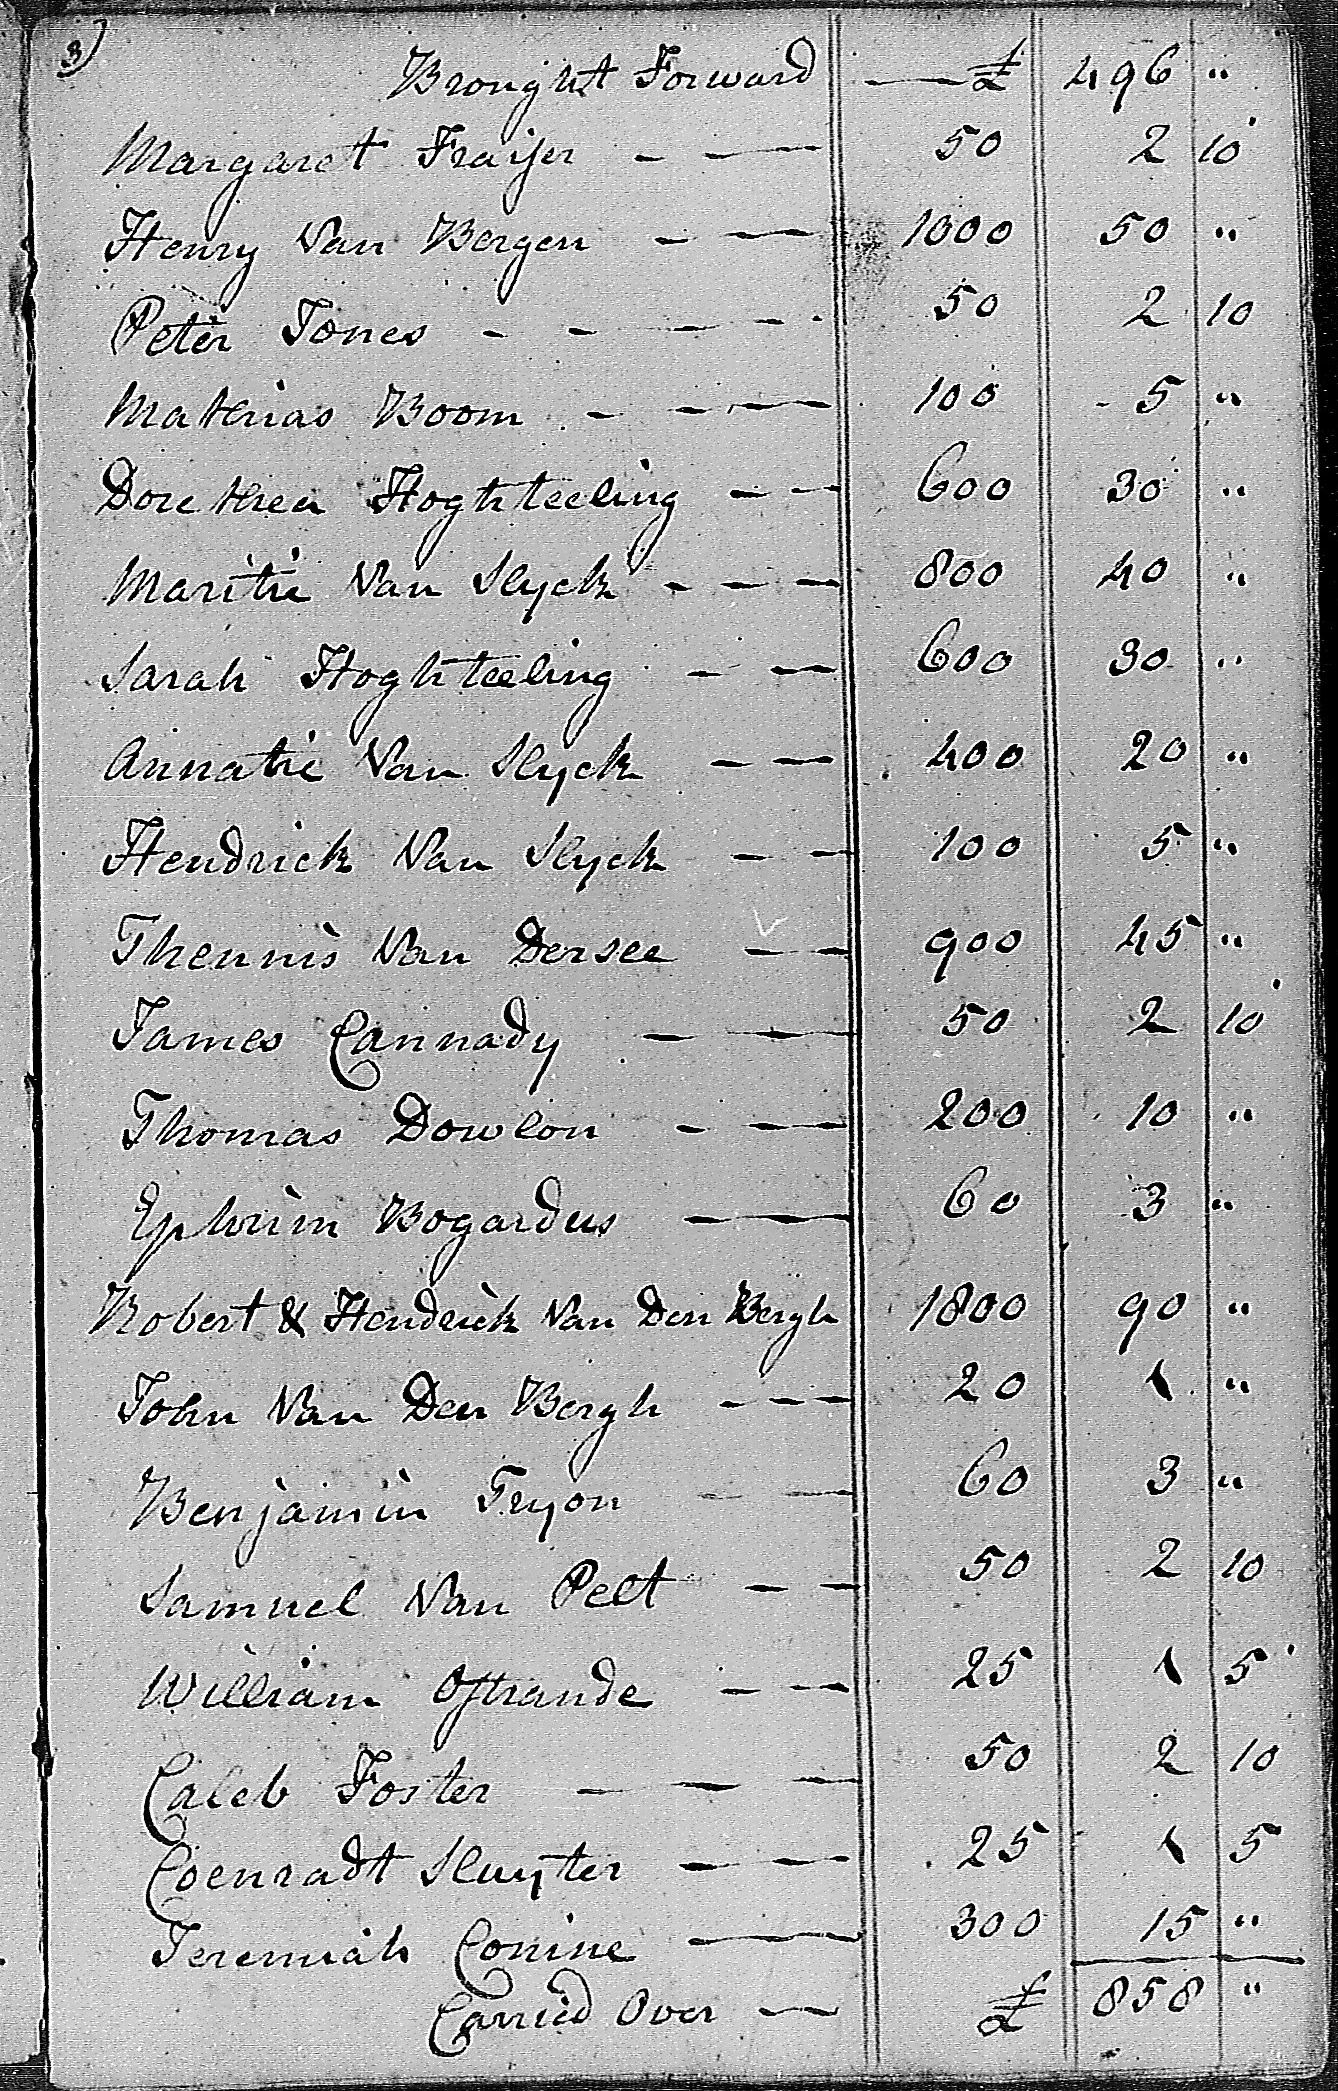 3)
Brought Forward — £ 496 "
Margaret Fraijer - — 50 2 10
Henry Van Bergen - — 1000 50 "
Peter Jones - - — - 50 2 10
Mathias Boom - - — 100 5 "
Dorethea Hoghteeling — — 600 30 "
Maritie Van Slyck - — — 800 40 "
Sarah Hoghteeling - — 600 30 "
Annatie Van Slyck — — 400 20 "
Hendrick Van Slyck — — 100 5 "
Theunis Van Dersee — — 900 45 "
James Cannady — — 50 2 10
Thomas Dowlon - — 200 10 "
Ephriim Bogardus — — 60 3 "
Robert & Hendrick Van Den Bergh 1800 90 "
John Van Den Bergh - — — 20 1 "
Benjamin Tryon — — 60 3 "
Samuel Van Pelt — — 50 2 10
William Ostrande — — 25 1 5
Caleb Foster — — — 50 2 10
Coenradt Sluyter — — — 25 1 5
Jeremiah Conine — — 300 15 "
Carried Over — £ 858 "